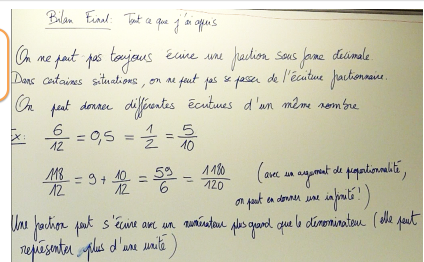 Bilan Final : Tout ce que j'ai appris
On ne peut pas toujours écrire une fraction sous forme décimale
Dans certaines situations, on ne peut pas se passer de l'écriture fractionnaire.
On peut donner différentes écritures d'un même nombre
Ex: 6/12 = 0,5 = 1/2 = 5/10
118/12 = 9 + 10/12 = 59/6 = 1180/120 (avec un argument de proportionnalité,
on peut en donner une infinité !)
Une fraction peut s'écrire avec un numérateur plus grand que le dénominateur (elle peut
représenter plus d'une unité)